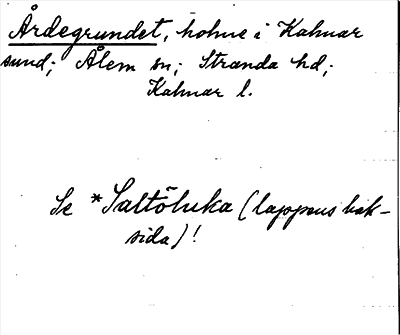 Årdegrundet, holme i Kalmar
sund; Ålem sn; Stranda hd;
Kalmar l.
Se *Saltöluka (lappens bak-
sida)!